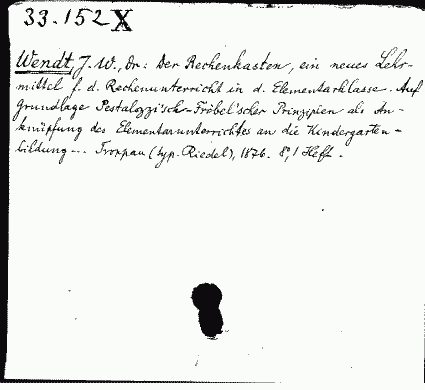 33.152 X
Wendt J. W., Dr: Der Rechenkasten, ein neues Lehr-
mittel f. d. Rechenunterricht in d. Elementarklasse. Auf
grundlage Pestalozzi'scher-Fröbel'scher Prinzipien als An-
knüpfung des Elementarunterrichtes an die Kindergarten-
bildung... Troppau (typ. Riedel), 1876. 8°, 1 Heft.